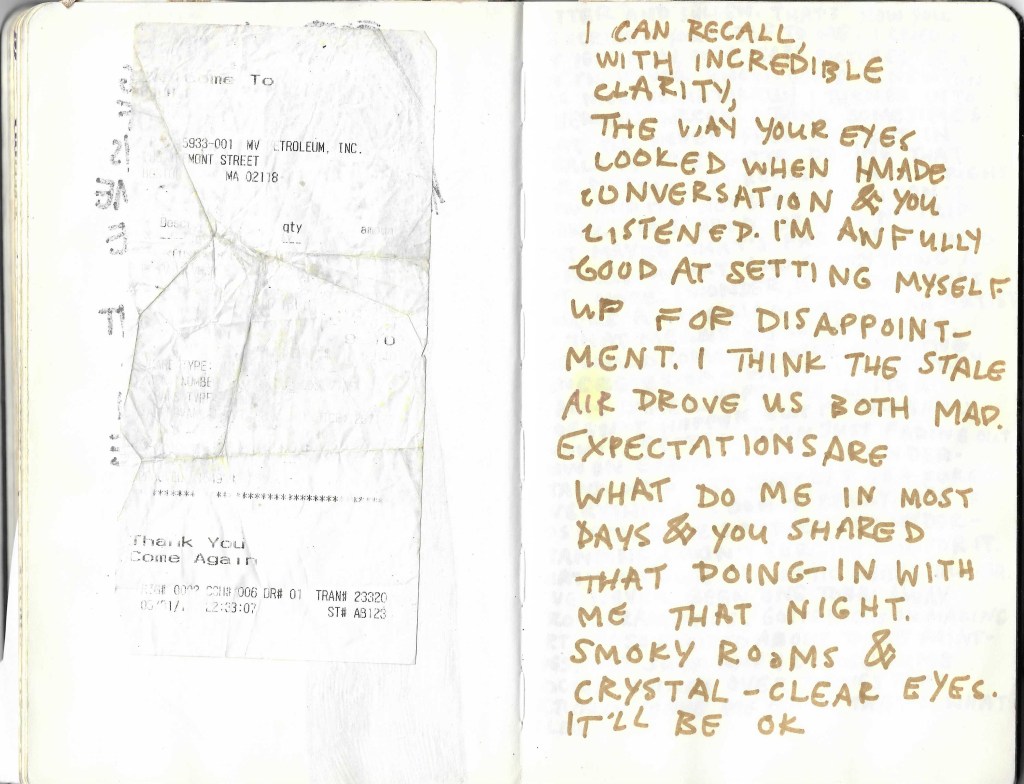 ome To
5933-001 MV TROLEUM, INC.
MONT STREET
MA 02118
qty
TYPE:
Thank You
Come Again
006 DR# 01 TRAN# 23320
ST# AB123
I CAN RECALL,
WITH INCREDIBLE
CLARITY,
THE WAY YOUR EYES
LOOKED WHEN I MADE
CONVERSATION & YOU
LISTENED. I'M AWFULLY
GOOD AT SETTING MYSELF
UP FOR DISAPPOINT-
MENT. I THINK THE STALE
AIR DROVE US BOTH MAD.
EXPECTATIONS ARE
WHAT DO ME IN MOST
DAYS & YOU SHARED
THAT DOING-IN WITH
ME THAT NIGHT.
SMOKY ROOMS &
CRYSTAL-CLEAR EYES.
IT'LL BE OK